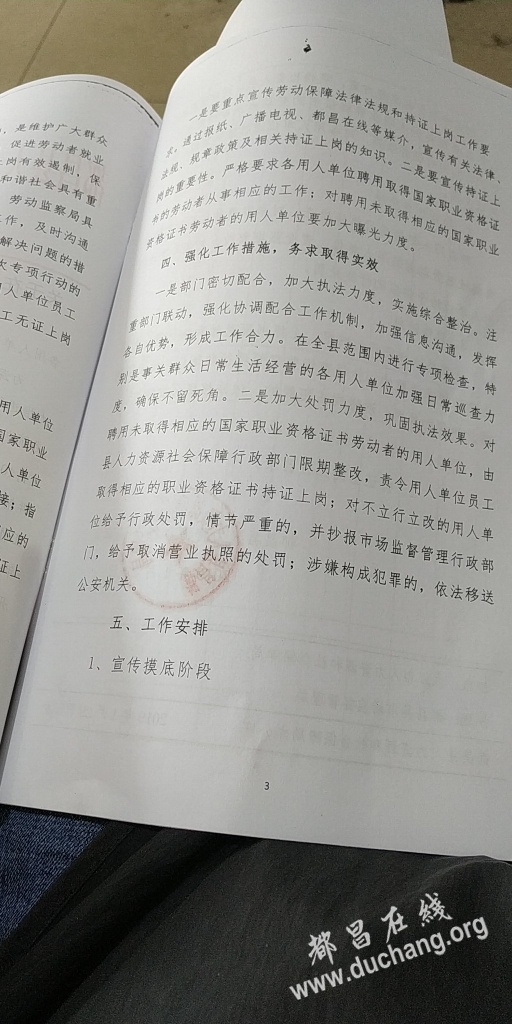 ，是维护广大群众
促进劳动者就业
岗有效遏制，保
和谐社会具有重
劳动监察局具
工作，及时沟通
解决问题的措
次专项行动的
用人单位员工
工无证上岗
用人单位
国家职业
人单位
接；指
应的
证上
一是要重点宣传劳动保障法律法规和持证上岗工作要
求，通过报纸、广播电视、都昌在线等媒介，宣传有关法律、
法规、规章政策及相关持证上岗的知识。二是要宣传持证上
岗的重要性。严格要求各用人单位聘用取得国家职业资格证
书的劳动者从事相应的工作；对聘用未取得相应的国家职业
资格证书劳动者的用人单位要加大曝光力度。
四、强化工作措施，务求取得实效
一是部门密切配合，加大执法力度，实施综合整治。注
重部门联动，强化协调配合工作机制，加强信息沟通，发挥
各自优势，形成工作合力。在全县范围内进行专项检查，特
别是事关群众日常生活经营的各用人单位加强日常巡查力
度，确保不留死角。二是加大处罚力度，巩固执法效果。对
聘用未取得相应的国家职业资格证书劳动者的用人单位，由
县人力资源社会保障行政部门限期整改，责令用人单位员工
取得相应的职业资格证书持证上岗；对不立行立改的用人单
位给予行政处罚，情节严重的，并抄报市场监督管理行政部
门，给予取消营业执照的处罚；涉嫌构成犯罪的，依法移送
公安机关。
五、工作安排
1、宣传摸底阶段
3
都昌在线
www.duchang.org